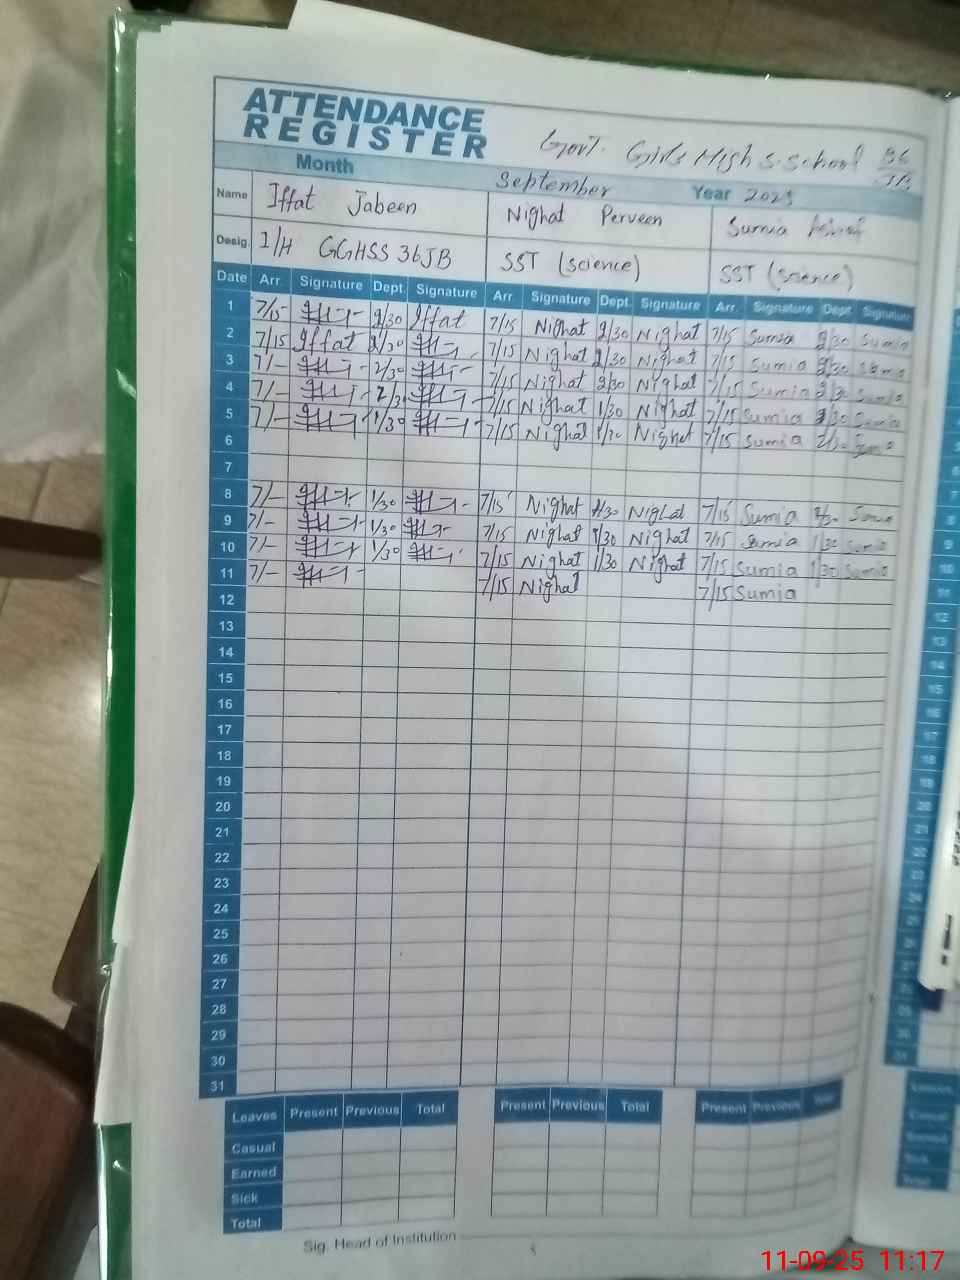 ATTENDANCE
REGISTER
Govt. Girls High S. School 36 JB
Month September Year 2025
Name Iffat Jabeen Nighat Perveen Sumia Ashraf
Desig. I/H GGHSS 36JB SST (science) SST (science)
Date Arr. Signature Dept. Signature Arr. Signature Dept. Signature Arr. Signature Dept. Signature
1 7/15 2/30 Iffat 7/15 Nighat 2/30 Nighat 7/15 Sumia 2/30 Sumia
2 7/15 Iffat 2/30 7/15 Nighat 2/30 Nighat 7/15 Sumia 2/30 Sumia
3 7/– 2/30 7/15 Nighat 2/30 Nighat 7/15 Sumia 2/30 Sumia
4 7/– 2/30 7/15 Nighat 1/30 Nighat 7/15 Sumia Sumia
5 7/– 1/30 7/15 Nighat Nighat 7/15 Sumia Sumia
6
7
8 7/– 1/30 7/15 Nighat 1/30 Nighat 7/15 Sumia Sumia
9 7/– 1/30 7/15 Nighat 1/30 Nighat 7/15 Sumia 1/30 Sumia
10 7/– 1/30 7/15 Nighat 1/30 Nighat 7/15 Sumia 1/30 Sumia
11 7/– 7/15 Nighat 7/15 Sumia
12
13
14
15
16
17
18
19
20
21
22
23
24
25
26
27
28
29
30
31
Leaves Present Previous Total Present Previous Total Present Previous Total
Casual
Earned
Sick
Total
Sig. Head of Institution
11-09-25 11:17